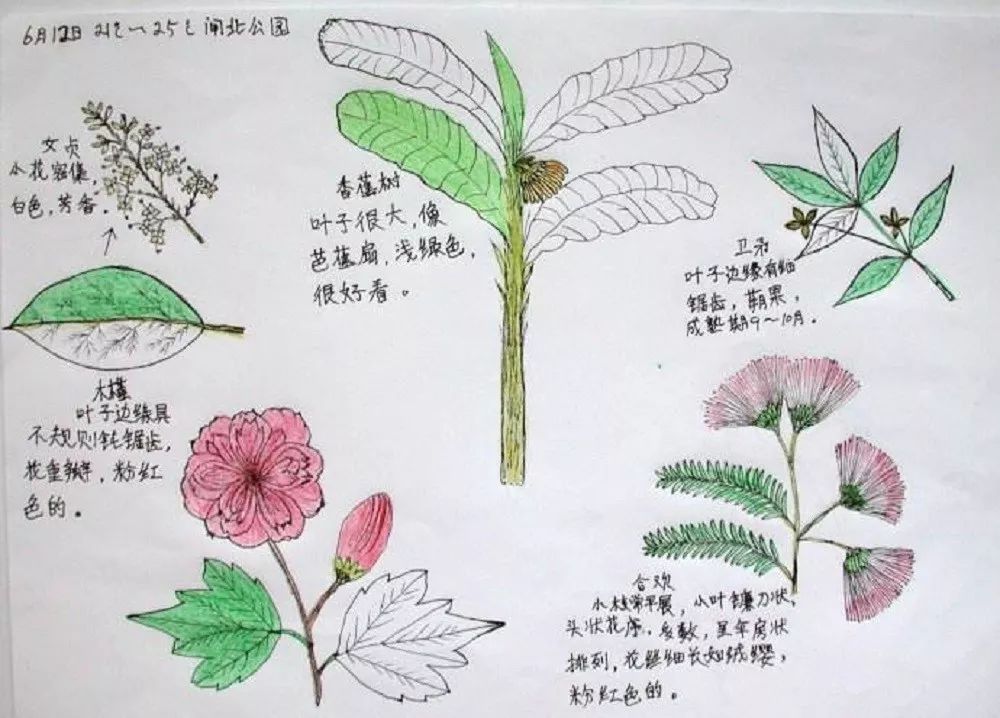 6月12日 21℃~25℃ 闸北公园
女贞
小花密集,
白色,芳香。
香蕉树
叶子很大,像
芭蕉扇,浅绿色,
很好看。
卫矛
叶子边缘有细
锯齿,蒴果,
成熟期9~10月。
木槿
叶子边缘具
不规则钝锯齿,
花重瓣,粉红
色的。
合欢
小枝常平展,小叶镰刀状,
头状花序,多数,呈伞房状
排列,花丝细长如绒缨,
粉红色的。